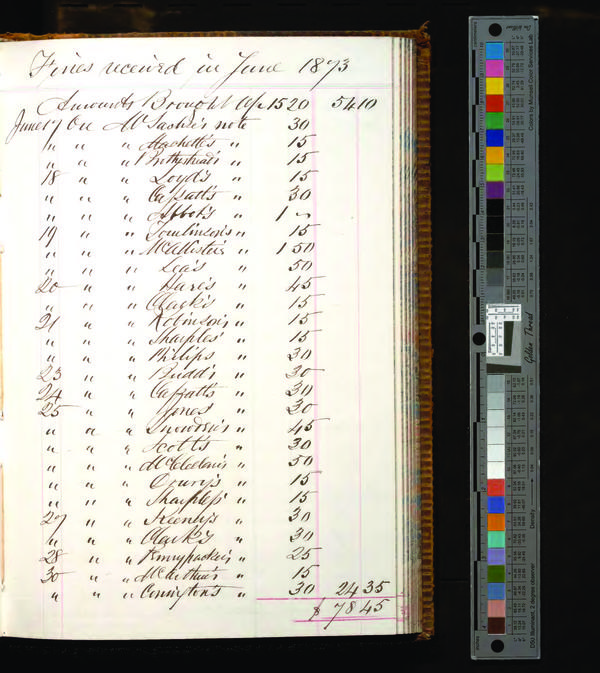 Fines received in June 1873
Amounts Brought up 15 20 54 10
June 17 On McSackie's note 30
" " " Hackett's " 15
" " " 15
18 " " Loyd's " 15
" " " Cassatt's " 30
" " " Abbot's " 1 "
19 " " Tomlinson's " 15
" " " McAllister's " 1 50
" " " Lea's " 50
20 " " Hare's " 45
" " " Clark's " 15
21 " " Robinson's " 15
" " " Sharples' " 15
" " " Philips " 30
23 " " Budd's " 30
24 " " Cassatt's " 30
25 " " Jones' " 30
" " " Snowden's " 45
" " " Scott's " 30
" " " McClellan's " 50
" " " 15
" " " Sharples' " 15
27 " " Keenly's " 30
" " " Clark's " 30
28 " " Pennypacker's " 25
30 " " McArthur's " 15
" " " Connington's " 30 24 35
$ 78 45
Golden Thread